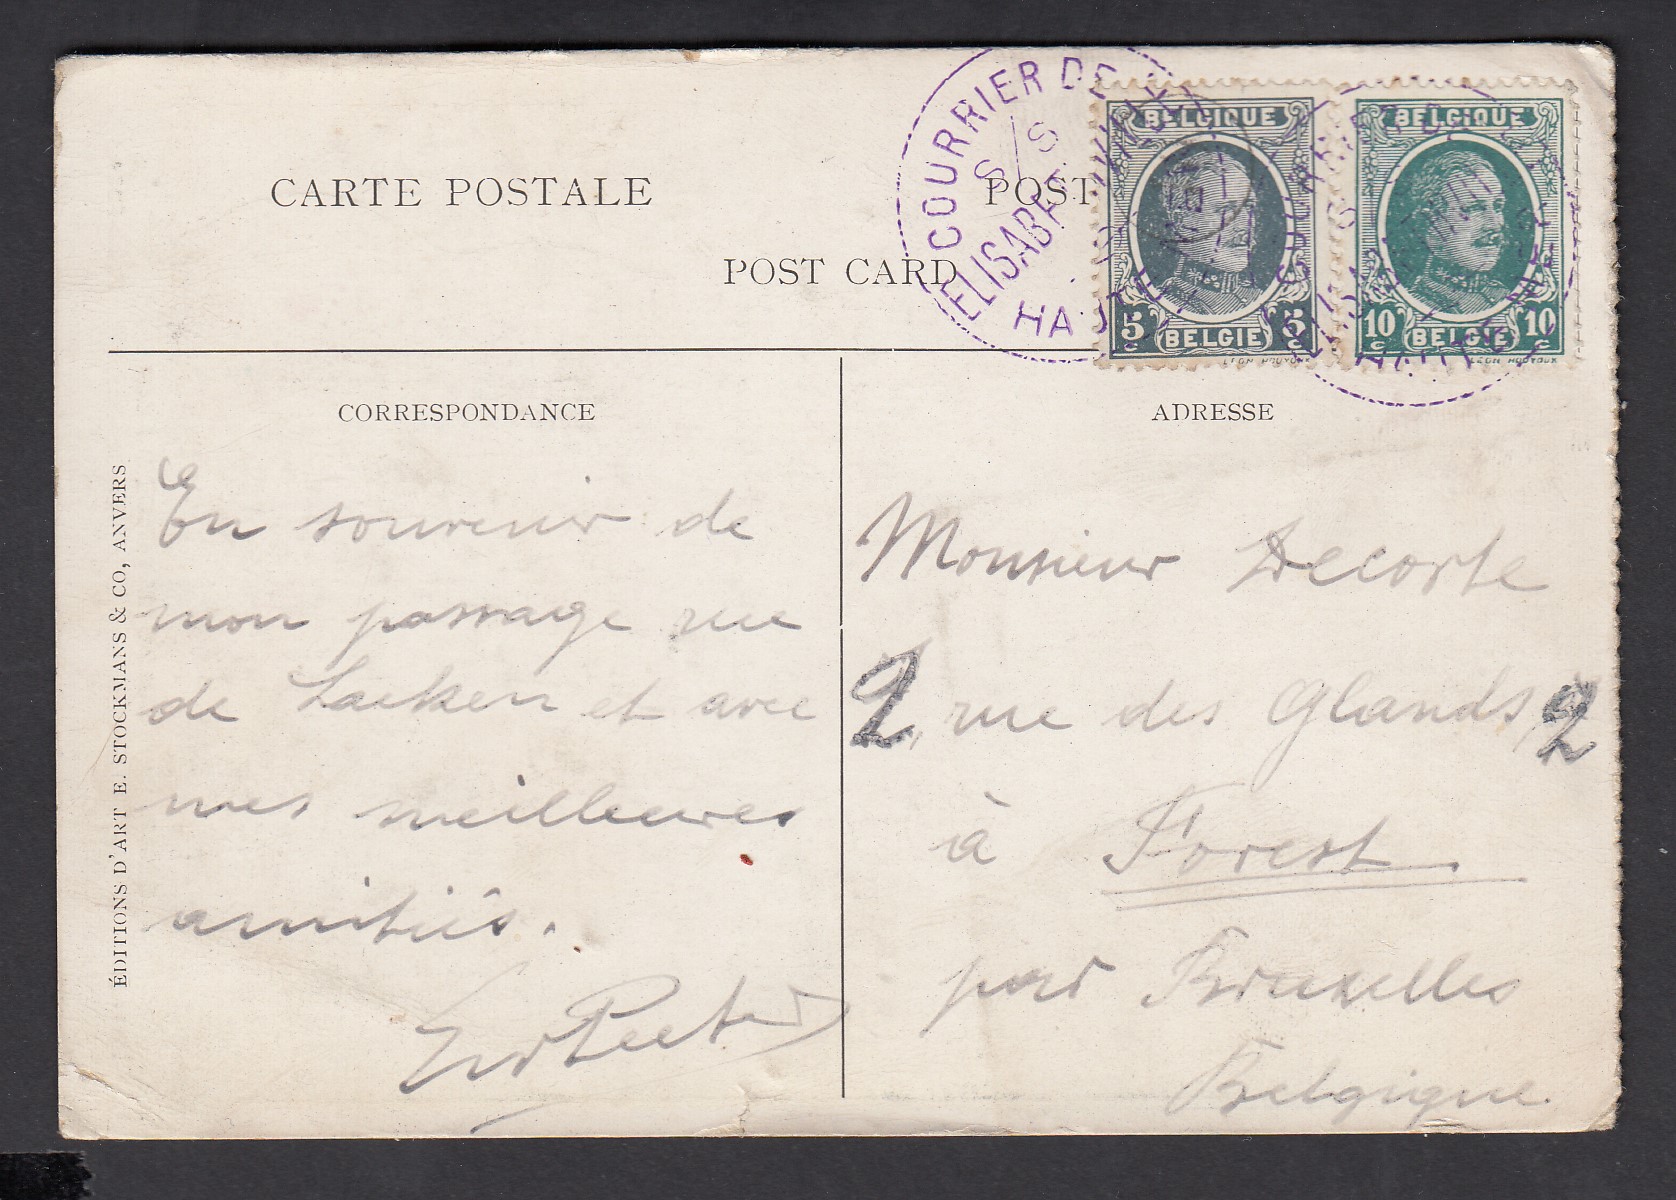 CARTE POSTALE
POST
POST CARD
COURRIER DE HAUTE
S/S
ELISABE
BELGIQUE
5c 5c
BELGIE
BELGIQUE
10c 10c
BELGIE
LÉON HOUYOUX
CORRESPONDANCE
ADRESSE
ÉDITIONS D'ART E. STOCKMANS & CO, ANVERS
En souvenir de
mon passage rue
de Laeken et avec
mes meilleures
amitiés.
Peeters
Monsieur Decorte
2, rue des Glands, 2
à Forest
par Bruxelles
Belgique